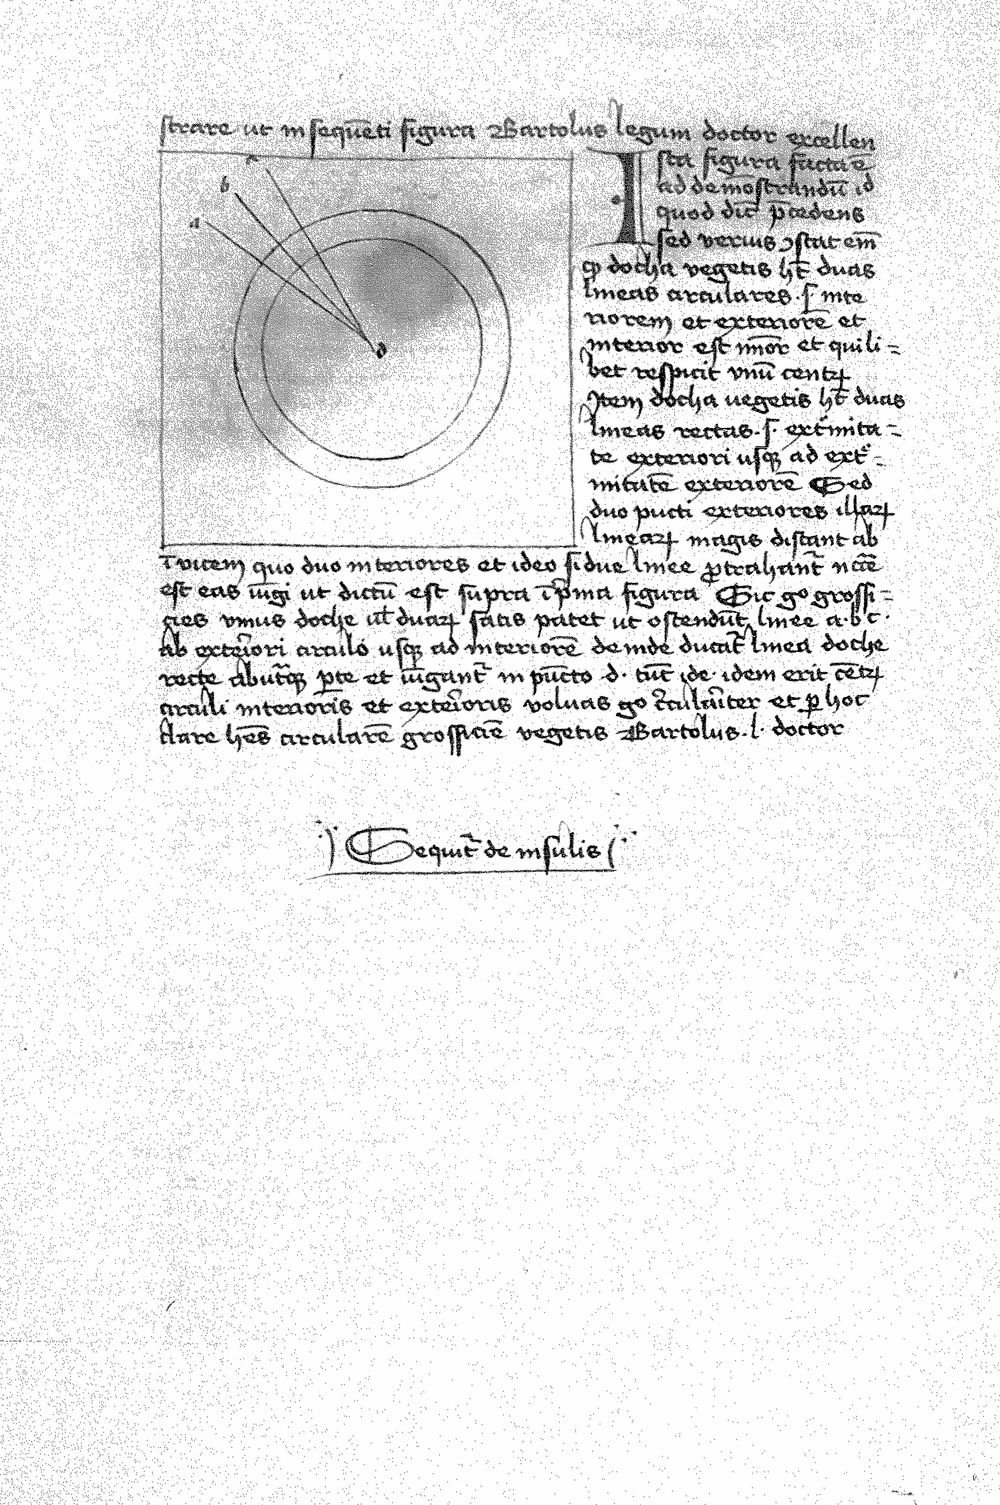 strare ut in seque͞ti figura Bartolus legum doctor excellen
c
b
a
d
Ista figura fc͞ta e͞
ad demo͞strandu͞ id
quod dic͞ p͞cedens
sed verius ꝯstat em͞
ꝙ docha vegetis ht͞ duas
lineas circulares .s. inte
riorem et exteriore͞ et
interior est mi͞or et quili=
bet respicit vnu͞ centꝝ
Item docha uegetis ht͞ duas
lineas rectas .s. ext͛mita=
te exteriori usqꝫ ad ext͛=
mitate͞ exteriore͞ Sed
duo pu͞cti exteriores illaꝝ
lineaꝝ magis distant ab
i͞vicem quo duo interiores et ideo si due linee ꝓtrahant͛ nc͞e͞
est eas iu͞gi ut dictu͞ est supra i͞ p͛ma figura Sic go grossi=
cies vnius doche ul͞ duaꝝ satis patet ut ostendu͞t linee a.b c.
ab exte͛iori circulo usqꝫ ad interiore͞ deinde ducat͛ linea doche
recte ab ut͛qꝫ ꝑte et iu͞gant͛ in pu͞cto .d. tu͞c .de. idem erit ce͞tꝝ
circuli interioris et exte͛ioris voluas go c͛cula͛iter et ꝑ hoc
clare he͞s circulare͞ grossicie͞ vegetis Bartolus .l. doctor
Sequit͛ de insulis